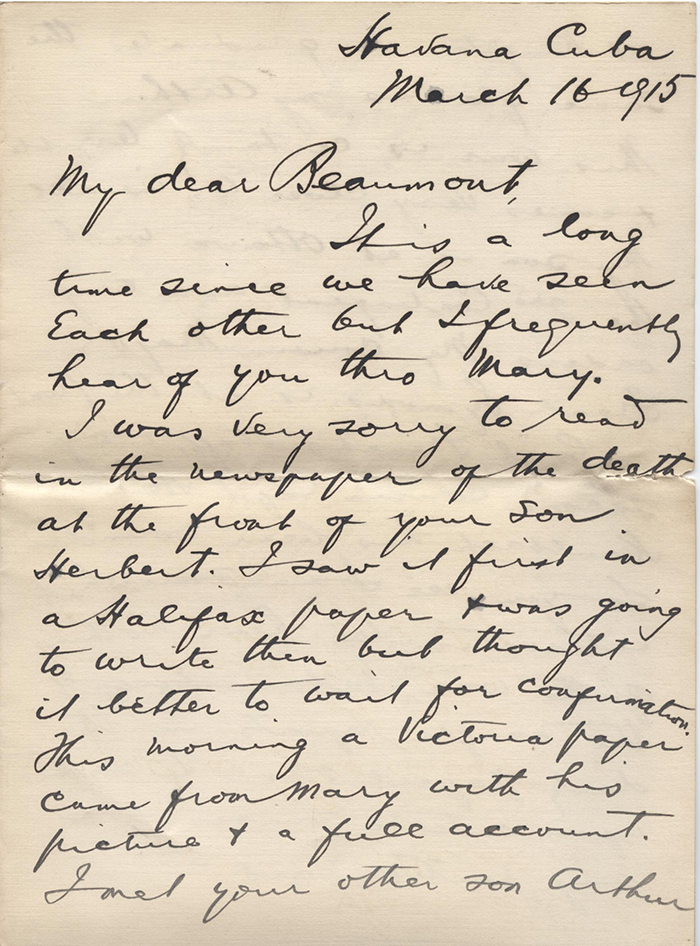 Havana Cuba
March 16 1915
My dear Beaumont,
It is a long
time since we have seen
Each other but I frequently
hear of you thro Mary.
I was very sorry to read
in the newspaper of the death
at the front of your son
Herbert. I saw it first in
a Halifax paper & was going
to write then but thought
it better to wait for confirmation.
This morning a Victoria paper
came from Mary with his
picture & a full account.
I met your other son Arthur